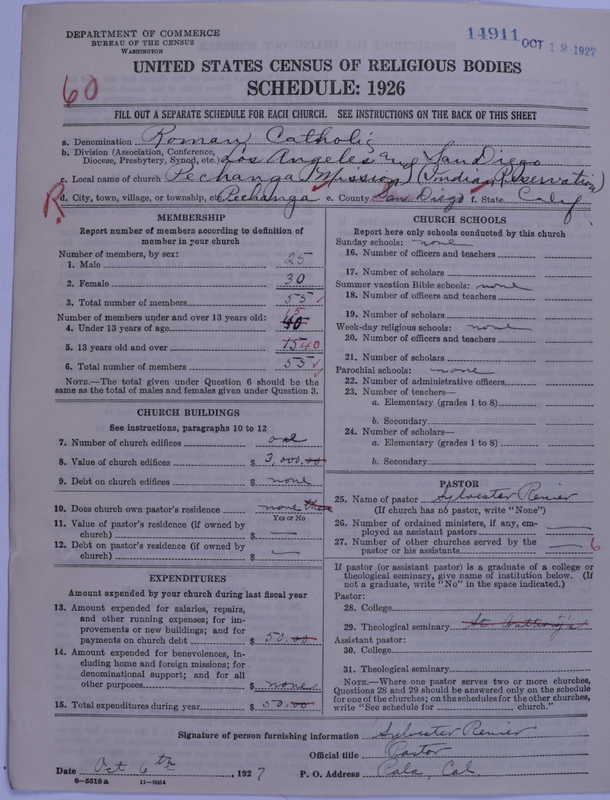 DEPARTMENT OF COMMERCE
BUREAU OF THE CENSUS
WASHINGTON
14911 OCT 12 1927
UNITED STATES CENSUS OF RELIGIOUS BODIES
SCHEDULE: 1926
60
FILL OUT A SEPARATE SCHEDULE FOR EACH CHURCH. SEE INSTRUCTIONS ON THE BACK OF THIS SHEET
a. Denomination Roman Catholic
b. Division (Association, Conference, Diocese, Presbytery, Synod, etc.) Los Angeles and San Diego
c. Local name of church Pechanga Mission (Indian Reservation)
R
d. City, town, village, or township, etc. Pechanga e. County San Diego f. State Calif
MEMBERSHIP
Report number of members according to definition of
member in your church
Number of members, by sex:
1. Male 25
2. Female 30
3. Total number of members 55
Number of members under and over 13 years old:
4. Under 13 years of age 40 15
5. 13 years old and over 15 40
6. Total number of members 55
NOTE.—The total given under Question 6 should be the
same as the total of males and females given under Question 3.
CHURCH BUILDINGS
See instructions, paragraphs 10 to 12
7. Number of church edifices one
8. Value of church edifices $ 3,000.00
9. Debt on church edifices $ none
10. Does church own pastor's residence none
Yes or No
11. Value of pastor's residence (if owned by
church) $ —
12. Debt on pastor's residence (if owned by
church) $ —
EXPENDITURES
Amount expended by your church during last fiscal year
13. Amount expended for salaries, repairs,
and other running expenses; for im-
provements or new buildings; and for
payments on church debt $ 50.00
14. Amount expended for benevolences, in-
cluding home and foreign missions; for
denominational support; and for all
other purposes $ none
15. Total expenditures during year $ 50.00
CHURCH SCHOOLS
Report here only schools conducted by this church
Sunday schools: none
16. Number of officers and teachers
17. Number of scholars
Summer vacation Bible schools: none
18. Number of officers and teachers
19. Number of scholars
Week-day religious schools: none
20. Number of officers and teachers
21. Number of scholars
Parochial schools: none
22. Number of administrative officers
23. Number of teachers—
a. Elementary (grades 1 to 8)
b. Secondary
24. Number of scholars—
a. Elementary (grades 1 to 8)
b. Secondary
PASTOR
25. Name of pastor Sylvester
(If church has no pastor, write "None")
26. Number of ordained ministers, if any, em-
ployed as assistant pastors —
27. Number of other churches served by the
pastor or his assistants — 6
If pastor (or assistant pastor) is a graduate of a college or
theological seminary, give name of institution below. (If
not a graduate, write "No" in the space indicated.)
Pastor:
28. College
29. Theological seminary St. Anthony's
Assistant pastor:
30. College
31. Theological seminary
NOTE.—Where one pastor serves two or more churches,
Questions 28 and 29 should be answered only on the schedule
for one of the churches; on the schedules for the other churches,
write "See schedule for church."
Signature of person furnishing information Sylvester
Official title Pastor
Date Oct 6th, 1927 P. O. Address Pala, Cal.
8—5518a 11—9664